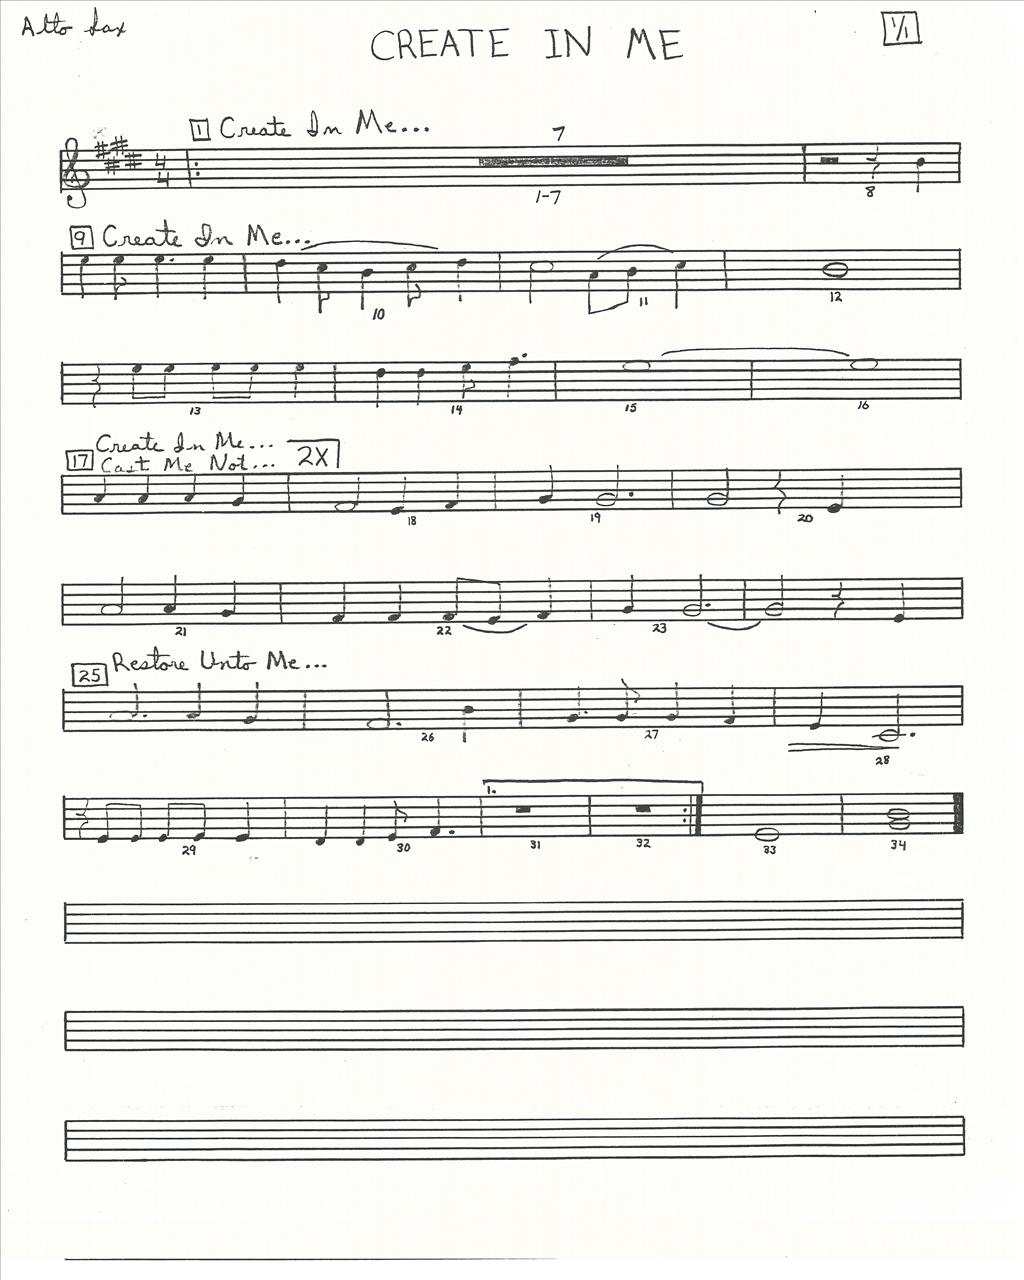 Alto Sax
CREATE IN ME
1/1
1 Create In Me...
7
4
4
1-7
8
9 Create In Me...
10
11
12
13
14
15
16
17 Create In Me...
Cast Me Not...
2X
18
19
20
21
22
23
25 Restore Unto Me...
26
27
28
1.
29
30
31
32
33
34